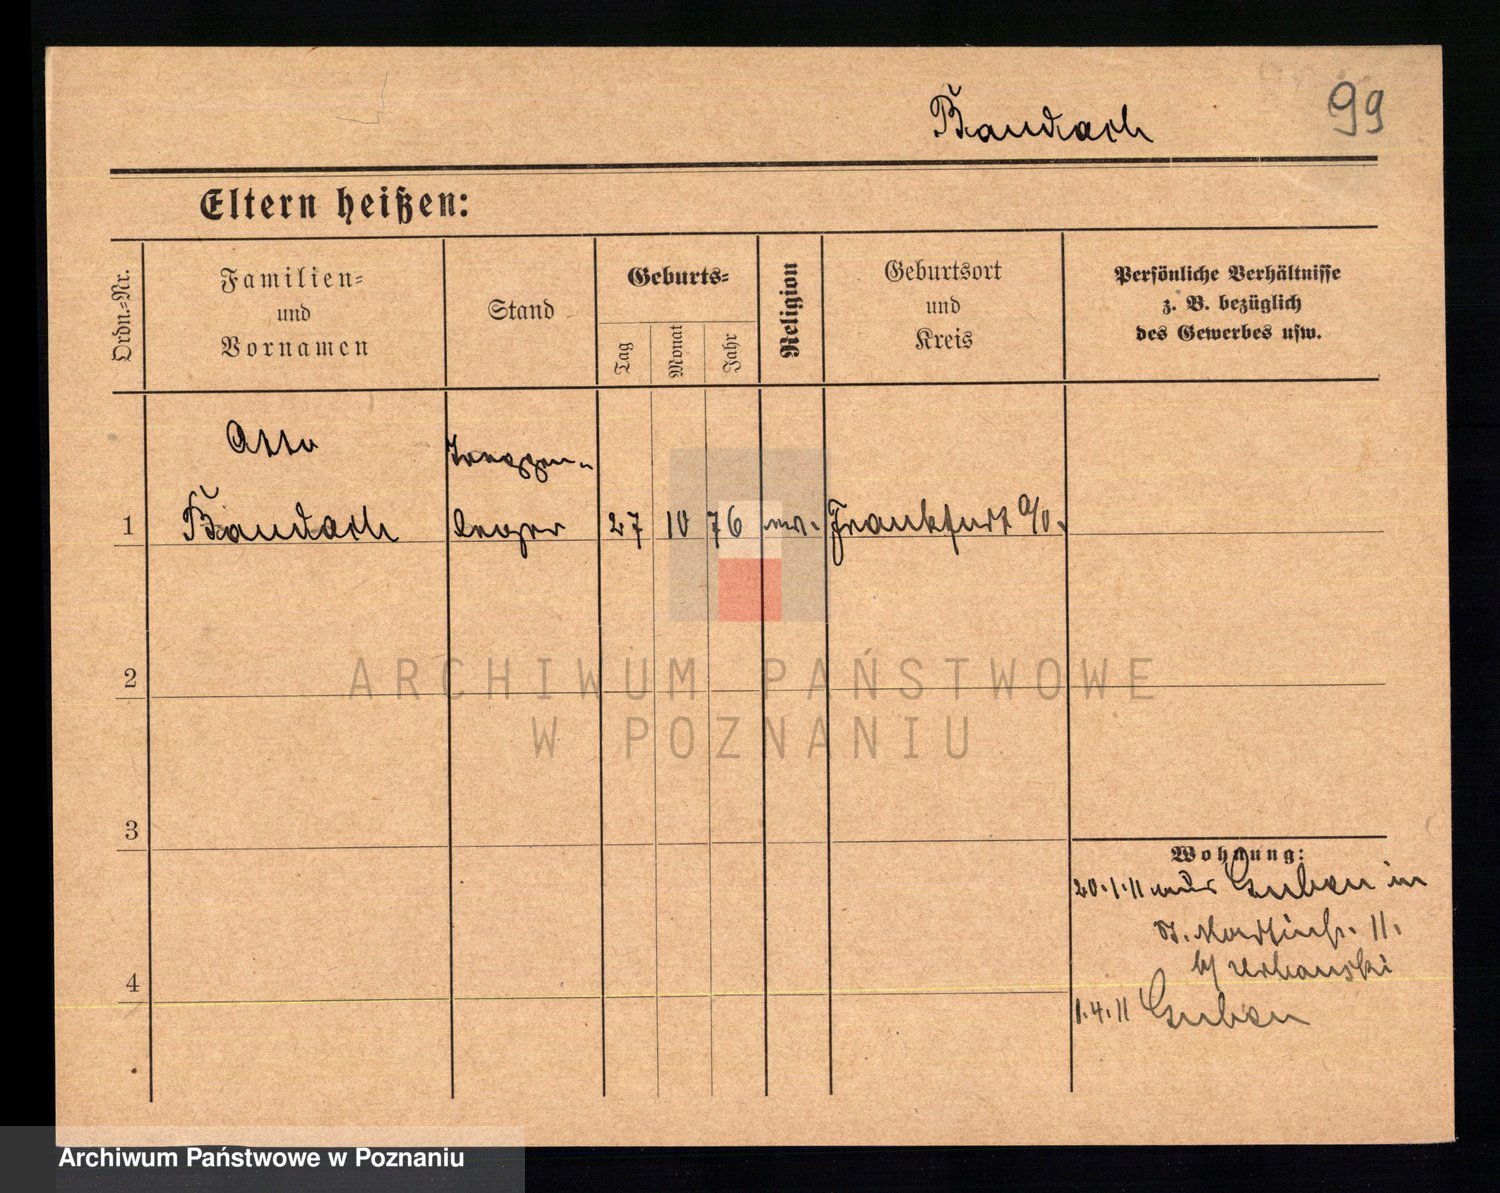 Baudach
99
Eltern heißen:
Ordn.-Nr.
Familien-
und
Vornamen
Stand
Geburts-
Tag
Monat
Jahr
Religion
Geburtsort
und
Kreis
Persönliche Verhältnisse
z. B. bezüglich
des Gewerbes usw.
Otto
Baudach
1
Treppen-
27 10 76
Frankfurt a/O.
2
3
4
Wohnung:
20.1.11 aus Guben in
St. Martinstr. 11.
b/ Urbanski
1.4.11 Guben
ARCHIWUM PAŃSTWOWE
W POZNANIU
Archiwum Państwowe w Poznaniu